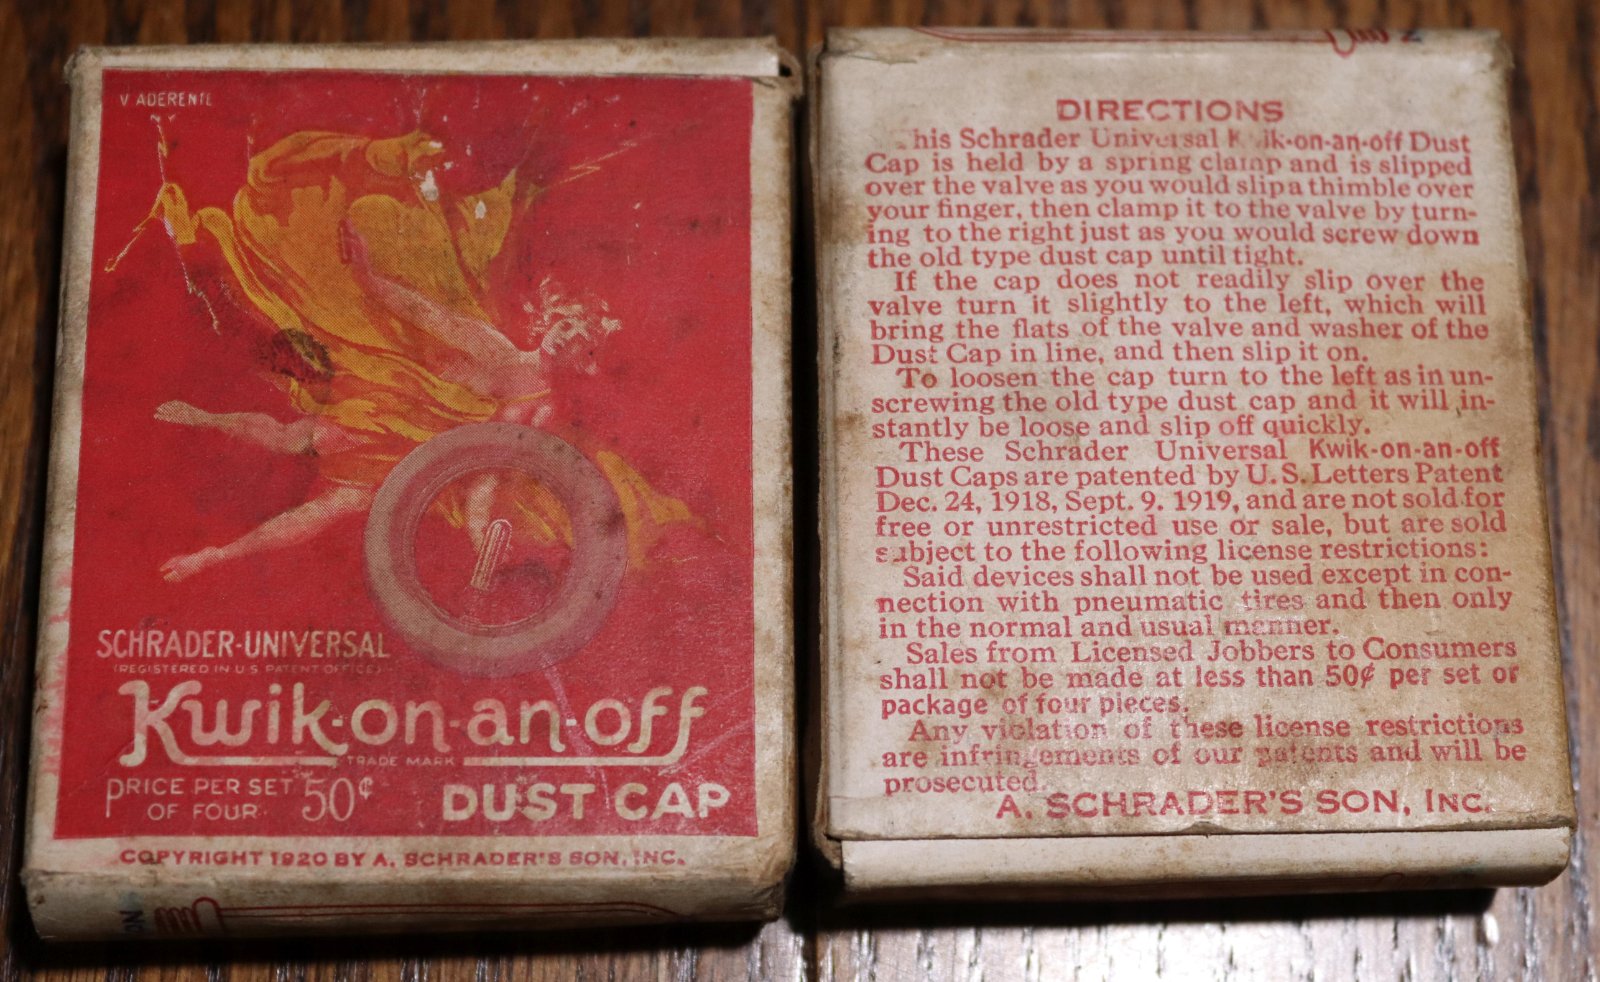 V ADERENTE
N Y
SCHRADER-UNIVERSAL
(REGISTERED IN U S PATENT OFFICE)
Kwik-on-an-off
TRADE MARK
PRICE PER SET 50¢
OF FOUR
DUST CAP
COPYRIGHT 1920 BY A. SCHRADER'S SON, INC.
DIRECTIONS
his Schrader Universal Kwik-on-an-off Dust
Cap is held by a spring clamp and is slipped
over the valve as you would slip a thimble over
your finger, then clamp it to the valve by turn-
ing to the right just as you would screw down
the old type dust cap until tight.
If the cap does not readily slip over the
valve turn it slightly to the left, which will
bring the flats of the valve and washer of the
Dust Cap in line, and then slip it on.
To loosen the cap turn to the left as in un-
screwing the old type dust cap and it will in-
stantly be loose and slip off quickly.
These Schrader Universal Kwik-on-an-off
Dust Caps are patented by U. S. Letters Patent
Dec. 24, 1918, Sept. 9. 1919, and are not sold for
free or unrestricted use or sale, but are sold
subject to the following license restrictions:
Said devices shall not be used except in con-
nection with pneumatic tires and then only
in the normal and usual manner.
Sales from Licensed Jobbers to Consumers
shall not be made at less than 50¢ per set or
package of four pieces.
Any violation of these license restrictions
are infringements of our patents and will be
prosecuted.
A. SCHRADER'S SON, INC.